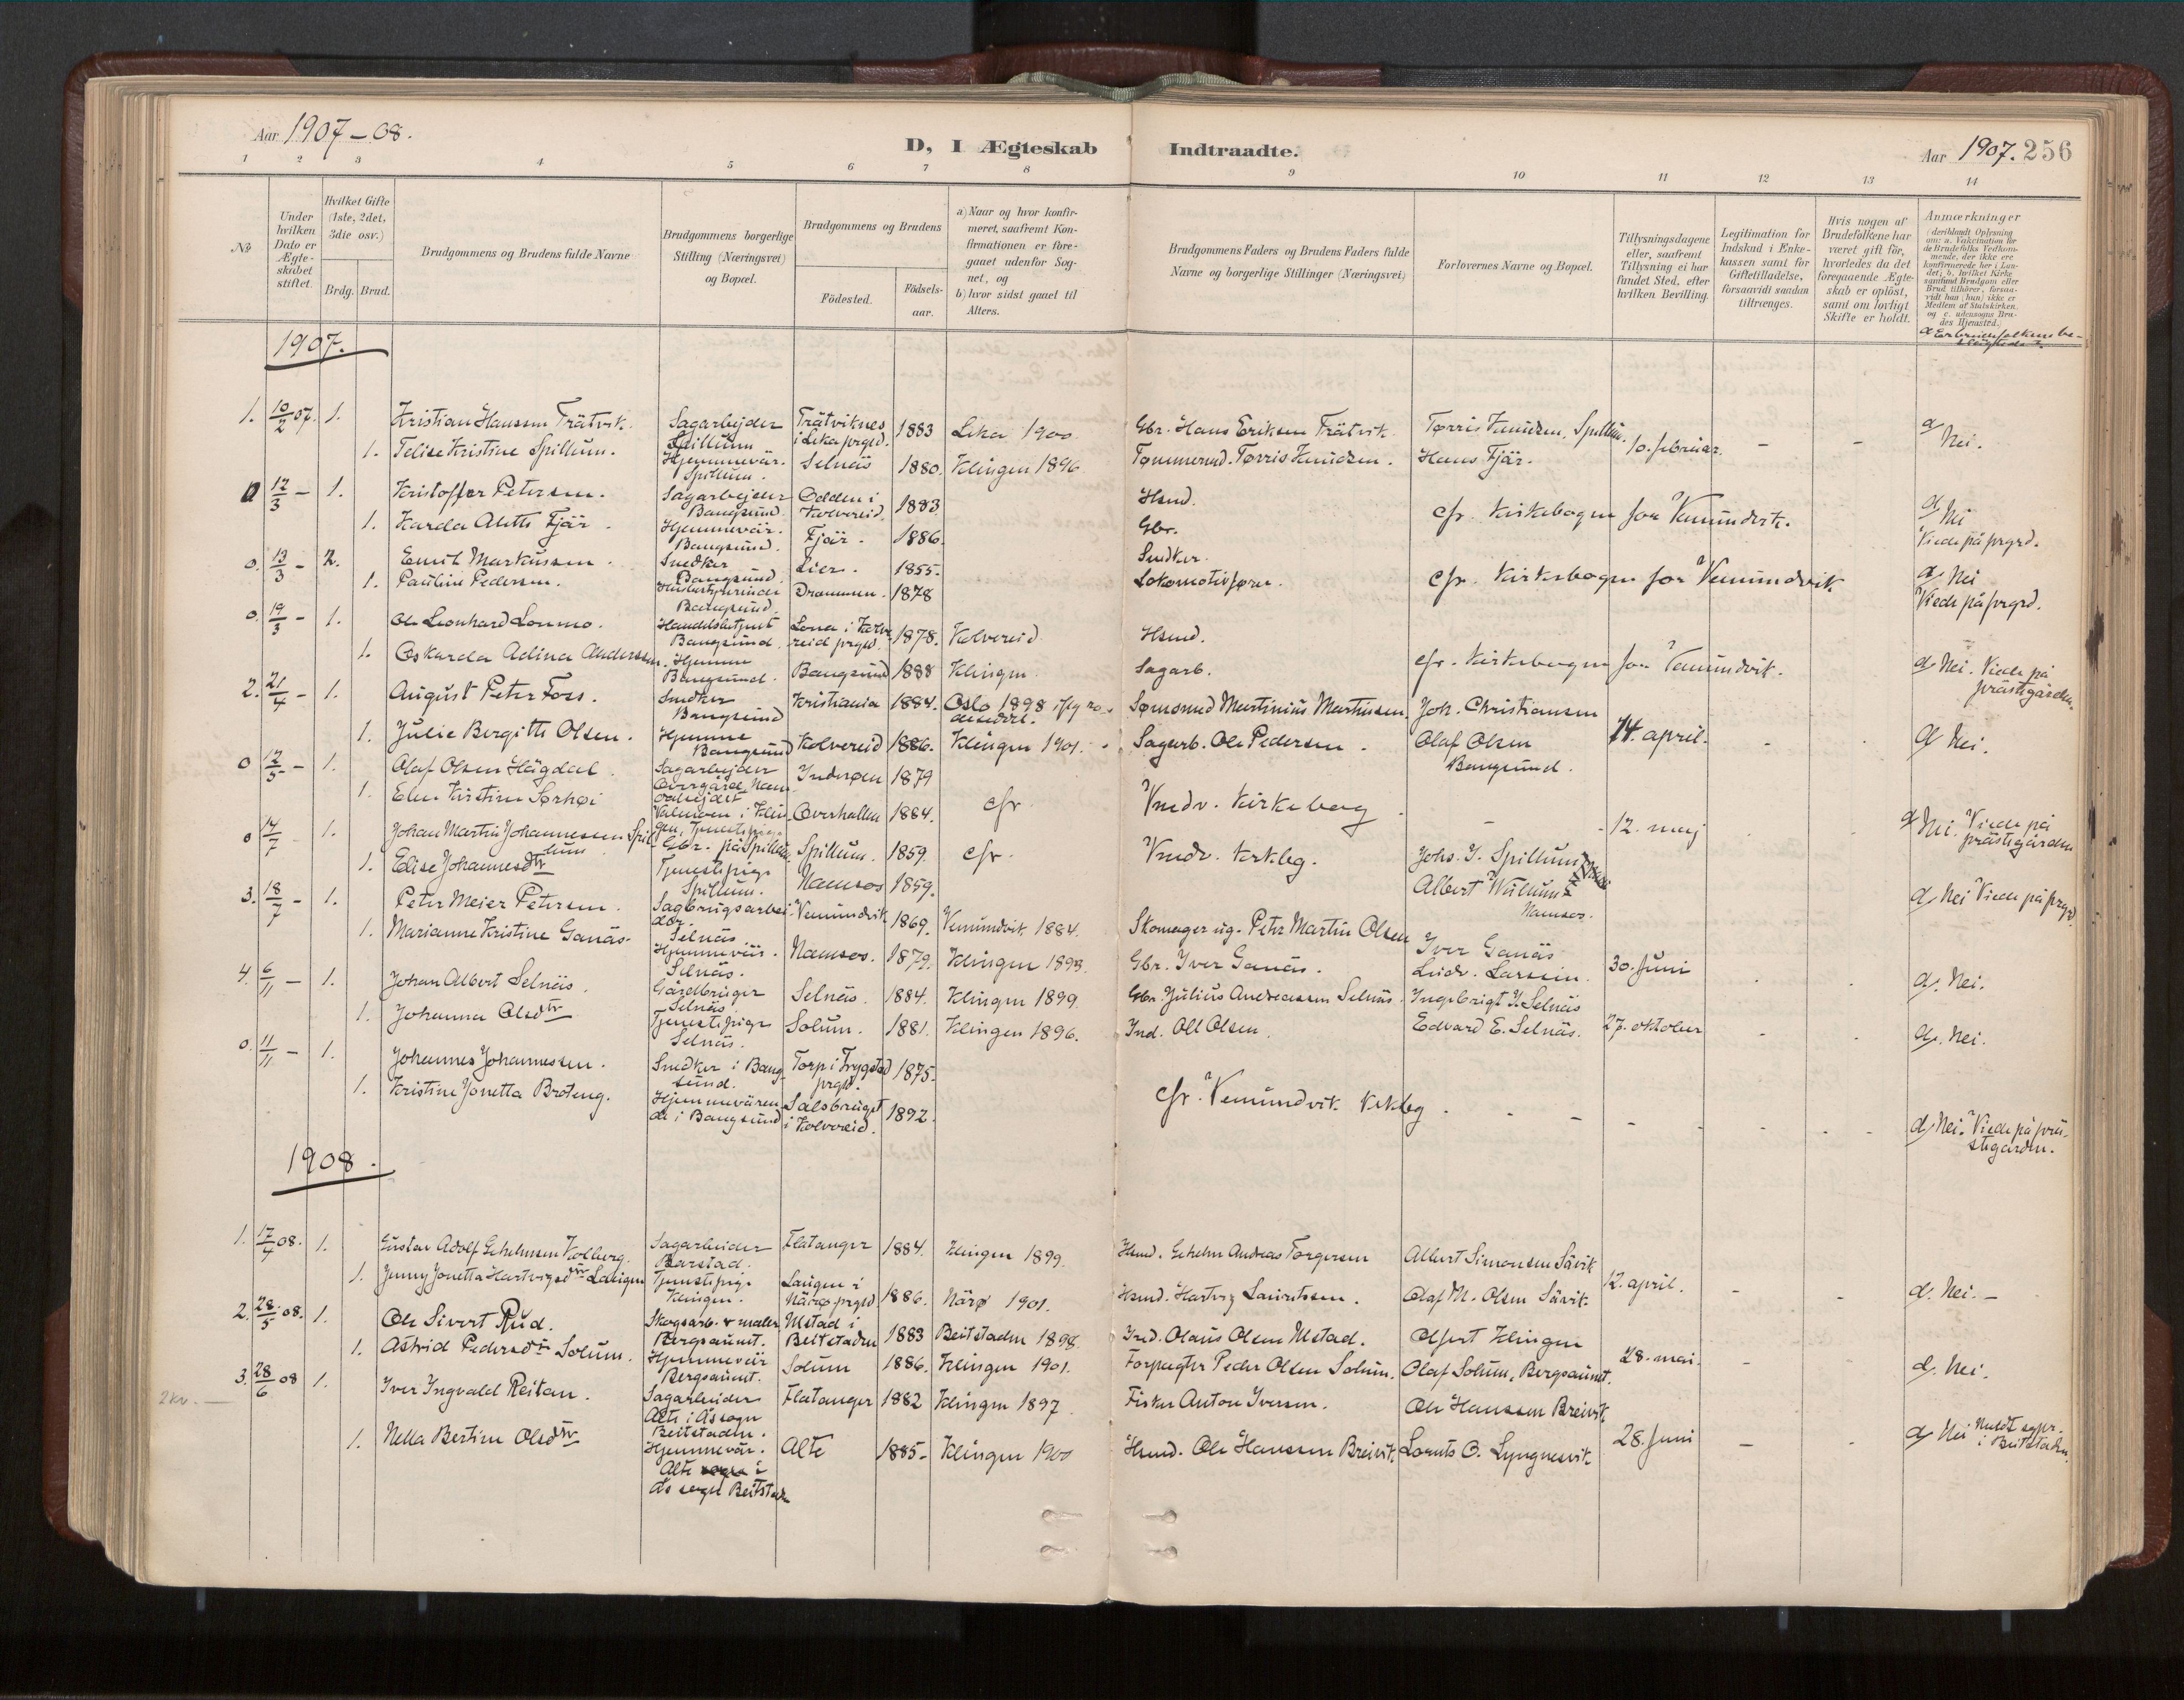 Aar 1907-08.
D, I Ægteskab Indtraadte.
Aar 1907. 256
1 2 3 4 5 6 7 8 9 10 11 12 13 14
No
Under hvilken Dato er Ægteskabet stiftet.
Hvilket Gifte (1ste, 2det, 3die osv.)
Brdg. Brud.
Brudgommens og Brudens fulde Navne
Brudgommens borgerlige Stilling (Næringsvei) og Bopæl.
Brudgommens og Brudens
Födested.
Födsels-aar.
a) Naar og hvor konfirmeret, saafremt Konfirmationen er foregaaet udenfor Sognet, og
b) hvor sidst gaaet til Alters.
Brudgommens Faders og Brudens Faders fulde Navne og borgerlige Stillinger (Næringsvei)
Forlovernes Navne og Bopæl.
Tillysningsdagene eller, saafremt Tillysning ei har fundet Sted, efter hvilken Bevilling.
Legitimation for Indskud i Enkekassen samt for Giftetilladelse, forsaavidt saadan tiltrænges.
Hvis nogen af Brudefolkene har været gift för, hvorledes da det foregaaende Ægteskab er oplöst, samt om lovligt Skifte er holdt.
Anmærkninger (deriblandt Oplysning om: a. Vakcination for de Brudefolks Vedkommende, der ikke ere konfirmerede her i Landet; b. hvilket Kirkesamfund Brudgom eller Brud tilhörer, forsaavidt han (hun) ikke er Medlem af Statskirken, og c. udensogns Brudes Hjemsted.
1907.
1. 10/2 07. 1. Kristian Hansen Trätvik. Sagarbejder Spillum Trätviknes i Leka prgld. 1883 Leka 1900. Gbr. Hans Eriksen Trätvik Tørris Knudsen, Spillum. 10. februar. - - d Nei.
1. Telise Kristine Spillum. Hjemmevär. Spillum. Selnäs 1880. Klingen 1896 Tømmermd. Tørris Knudsen. Hans Fjär.
0 12/3 - 1. Kristoffer Petersen. Sagarbejder Bangsund. Odden i Kolvereid. 1883 Hsmd. cfr. Kirkebogen for Vemundvik. d Nei
1. Karda Aletta Fjär. Hjemmevär. Bangsund. Fjär. 1886. Gbr. Viede på prgrd.
0. 13/3 - 2. Emil Markussen. Snedker Bangsund. Lier. 1855. Snedker. cfr. Kirkebogen for Vemundvik d Nei
1. Pauline Pedersen. Bangsund. Drammen. 1878 Lokomotivfører. Viede på prgrd.
0. 19/3 - 1. Ole Leonhard Lonmo. Handelsbetjent Bangsund. i Kolvereid prgld. 1878. Kolvereid Hsmd. cfr. Kirkebogen for Vemundvik. d Nei. Viede på prästegården.
1. Oskarda Adina Andersen. Hjemme Bangsund. Bangsund 1888 Klingen. Sagarb.
2. 21/4 - 1. August Peter Foss. Snedker Bangsund Kristiania 1884. Oslo 1898 Sømsmed Martinius Martinsen. Joh. Christiansen 14. april. - d Nei.
1. Julie Bergitte Olsen. Hjemme Bangsund Kolvereid 1886. Klingen 1901. Sagarb. Ole Pedersen. Olaf Olsen Bangsund.
0 12/5 - 1. Olaf Olsen Hägdal. Sagarbejder Inderøen 1879 cfr. Vmdv. Kirkebog - 12. maj d Nei. Viede på prästegården
1. Elen Kristine Sørhøi i Klingen, Tjenestepige Overhallen 1884.
0 14/7 - 1. Johan Martin Johannessen Spillum Gbr. på Spillum. Spillum. 1859. cfr. Vmdv. krkbg. Johs. J. Spillum d Nei Viede på prgd
1. Elise Johannesdtr Tjenestepige Spillum. Namsos 1859. Albert Wällum Namsos.
3. 18/7 - 1. Peter Meier Petersen. Sagbrugsarbeider Selnäs Vemundvik 1869. Vemundvik 1884. Skomager ug. Petr Martin Olsen Iver Ganäs 30. Juni d. Nei.
1. Marianne Kristine Ganäs. Hjemmevär. Selnäs. Namsos. 1879. Klingen 1893. Gbr. Iver Ganäs. Ludv. Larssen.
4. 6/11 - 1. Johan Albert Selnäs. Gårdbruger Selnäs Selnäs. 1884. Klingen 1899. Gbr. Julius Andreassen Selnäs. Ingebrigt J. Selnäs 27. oktober d. Nei.
1. Johanna Olsdtr Tjenestepige Selnäs. Solum. 1881. Klingen 1896. Ind. Oll Olsen. Edvard E. Selnäs.
0. 11/11 - 1. Johannes Johannessen. Snedker i Bangsund. Torp i Trygstad prgld. 1875. cfr. Vemundvik krkbg. - - - d. Nei. Viede på prästegården.
1. Kristine Jonetta Broteng. Hjemmevärende i Bangsund Salsbruget i Kolvereid. 1892.
1908.
1. 17/4 08. 1. Gustav Adolf Kolberg. Sagarbeider Barstad. Flatanger 1884. Klingen 1899. Hsmd. Andreas Torgersen Albert Simonsen Sävik 12. april. - - d. Nei. -
1. Jenny Jonetta Hartvigsdtr Laugen Tjenestepige Klingen. Laugen i Närø prgld 1886. Närø 1901. Hsmd. Hartvig Lauritssen. Olaf M. Olsen Sävik.
2. 28/5 08. 1. Ole Sivert Rud. Skogsarb. & maler Bergsaunet. Ulstad i Beitstaden 1883 Beitstaden 1898. Ind. Olaus Olsen Ulstad. Olfert Klingen 28. mai. - - d. Nei.
1. Astrid Pedersdtr Solum. Hjemmevär Bergsaunet. Solum 1886. Klingen 1901. Forpagter Peder Olsen Solum. Olaf Solum, Bergsaunet.
2 kv. - 3. 28/6 08 1. Iver Ingvald Reitan. Sagarbeider Alte i Åssogn Beitstaden. Flatanger 1882 Klingen 1897 Fisker Anton Iversen. Ole Hanssen Breivik 28. Juni - d Nei i Beitstaden.
1. Nella Bertine Olsdtr Hjemmevär. Alte i Ås sogn Beitstaden Alte 1885- Klingen 1900 Hsmd. Ole Hanssen Breivik Lornts O. Lyngnesvik